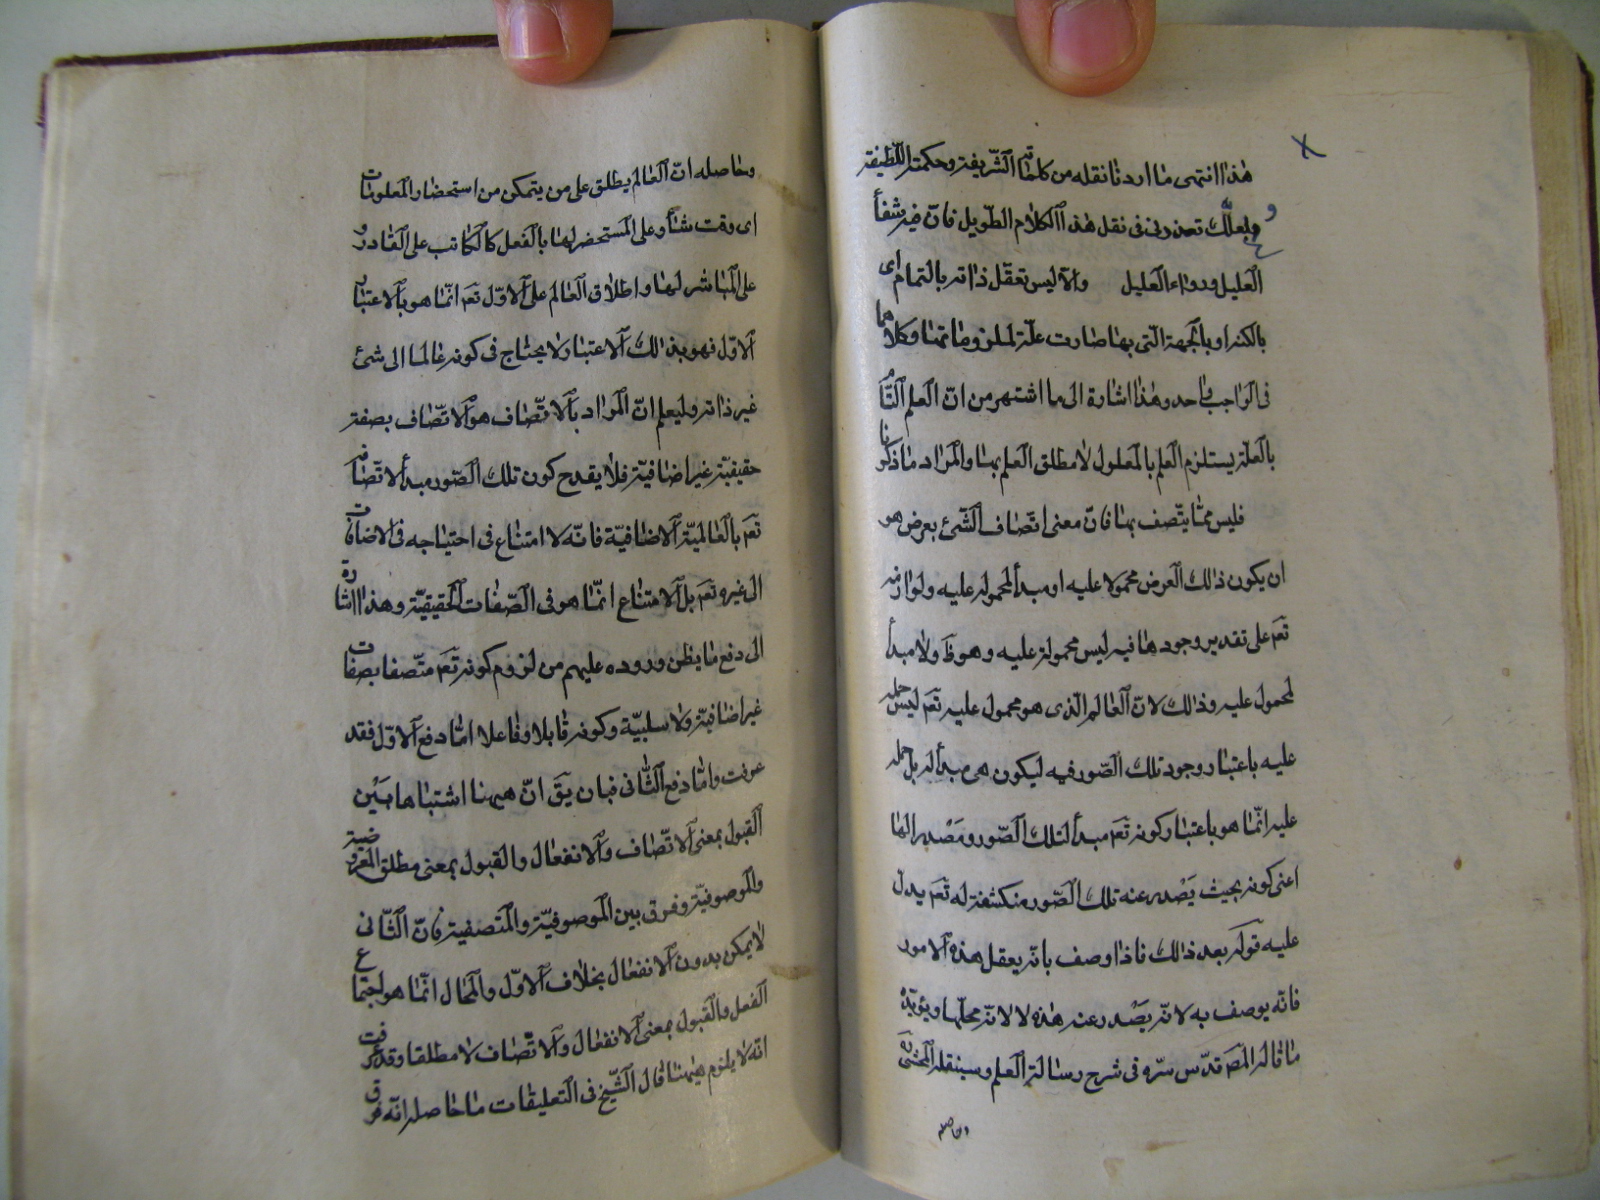 هذا انتهى ما اردنا نقله من كلماته الشريفة وحكمته اللطيفة
ولعلك تعذرنى فى نقل هذا الكلام الطويل فان فيه شفأ
العليل ودواء العليل والا ليس تعقل ذاته بالتمام اى
بالكنه او بالجهة التى بها صارت علة لملزوماتها وكلاهما
فى الواجب واحد وهذا اشارة الى ما اشتهر من ان العلم التام
بالعلة يستلزم العلم بالمعلول لا مطلق العلم بها والمراد ما ذكرنا
فليس مما يتصف بها فان معنى اتصاف الشئ بعرض هو
ان يكون ذلك العرض محمولا عليه او مبدأ لمحمول عليه ولوازمه
تعم على تقدير وجودها فيه ليس محمولة عليه وهو ظ ولا مبدأ
لمحمول عليه وذلك لان العالم الذى هو محمول عليه تعم ليس حمله
عليه باعتبار وجود تلك الصور فيه ليكون هى مبدأ له بل حمله
عليه انما هو باعتبار كونه تعم مبدأ لتلك الصور ومصدر الها
اعنى كونه بحيث يصدر عنه تلك الصور منكشفة له تعم يدل
عليه قوله بعد ذلك فاذا وصف بانه يعقل هذه الامور
فانه يوصف به لانه يصدر عنه هذه لا لانه محلها ويؤيده
ما قاله المص قدس سره فى شرح رسالة العلم وسينقله المحشى
وحاصله
وحاصله ان العالم يطلق على من يتمكن من استحضار المعلومات
اى وقت شأ وعلى المستحضر لها بالفعل كالكاتب على القادر و
على المباشر لها واطلاق العالم على الاول تعم انما هو بالاعتبار
الاول فهو بذلك الاعتبار لا يحتاج فى كونه عالما الى شئ
غير ذاته وليعلم ان المراد بالاتصاف هو الاتصاف بصفة
حقيقية غير اضافية فلا يقدح كون تلك الصور مبدأ لاتصافه
تعم بالعالمية الاضافية فانه لا امتناع فى احتياجه فى الاضافات
الى غيره تعم بل الامتناع انما هو فى الصفات الحقيقية وهذا اشارة
الى دفع ما يظن وروده عليهم من لزوم كونه تعم متصفا بصفات
غير اضافية ولا سلبية وكونه قابلا وفاعلا اما دفع الاول فقد
عرفت واما دفع الثانى فبان يق ان هيهنا اشتباها بين
القبول بمعنى الاتصاف والانفعال والقبول بمعنى مطلق المعروضية
والموصوفية وفرق بين الموصوفية والمتصفية فان الثانى
لا يمكن بدون الانفعال بخلاف الاول والمحال انما هو اجتماع
الفعل والقبول بمعنى الانفعال والاتصاف لا مطلقا وقد عرفت
انه لا يلزم هيهنا قال الشيخ فى التعليقات ما حاصله انه فرق